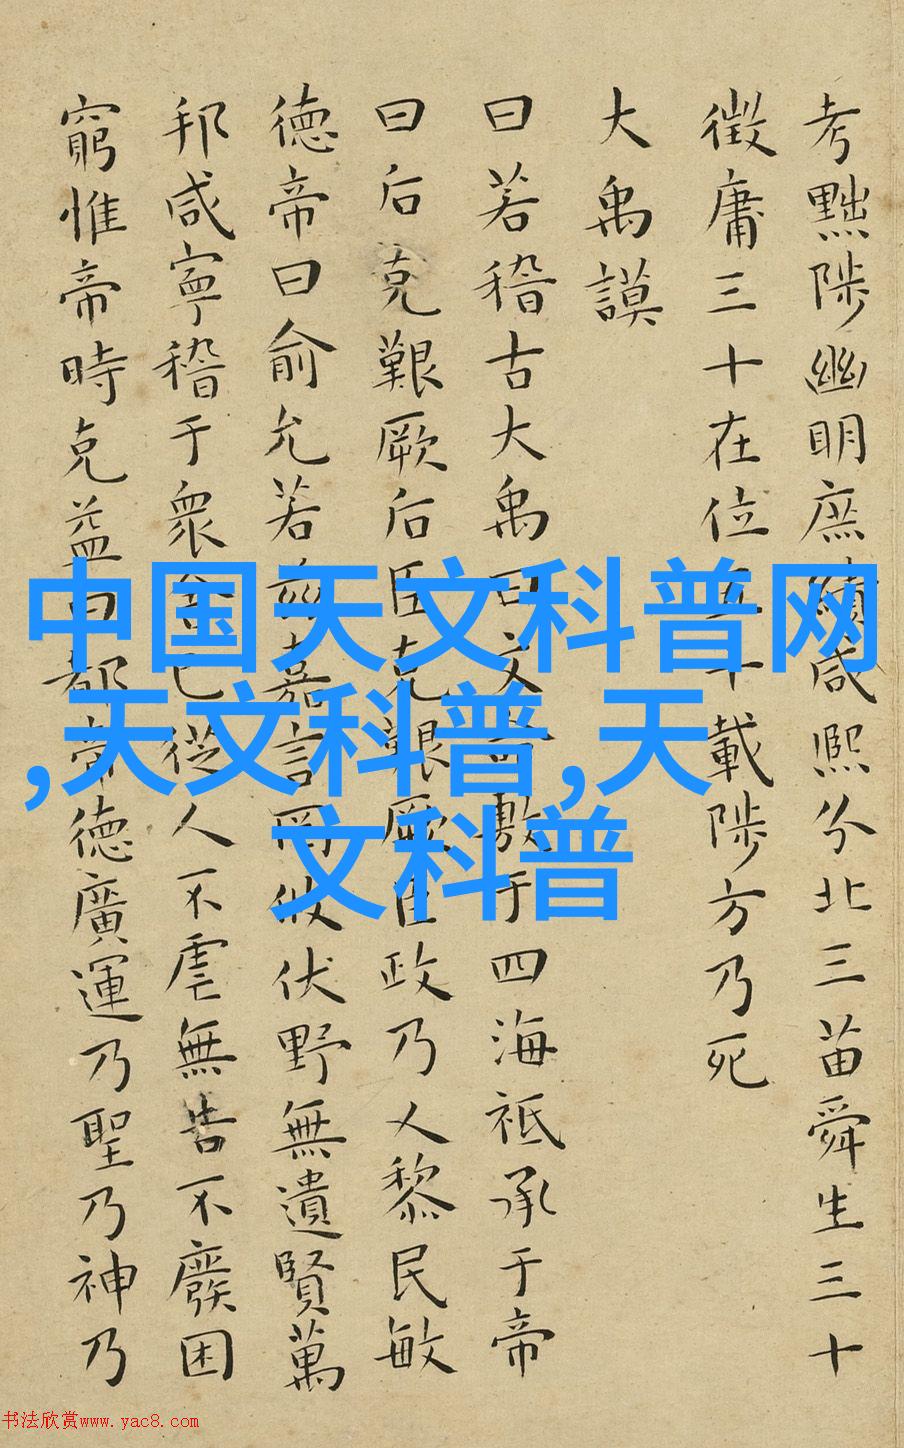 考黜陟幽明庶績咸熙分北三苗舜生三十
徵庸三十在位五十載陟方乃死
大禹謨
曰若稽古大禹曰文命敷于四海祗承于帝
曰后克艱厥后臣克艱厥臣政乃乂黎民敏
德帝曰俞允若茲嘉言罔攸伏野無遺賢萬
邦咸寧稽于衆舍己從人不虐無告不廢困
窮惟帝時克益曰都帝德廣運乃聖乃神乃
中国天文科普网
,天文科普,天
文科普
书法欣赏www.yac8.com